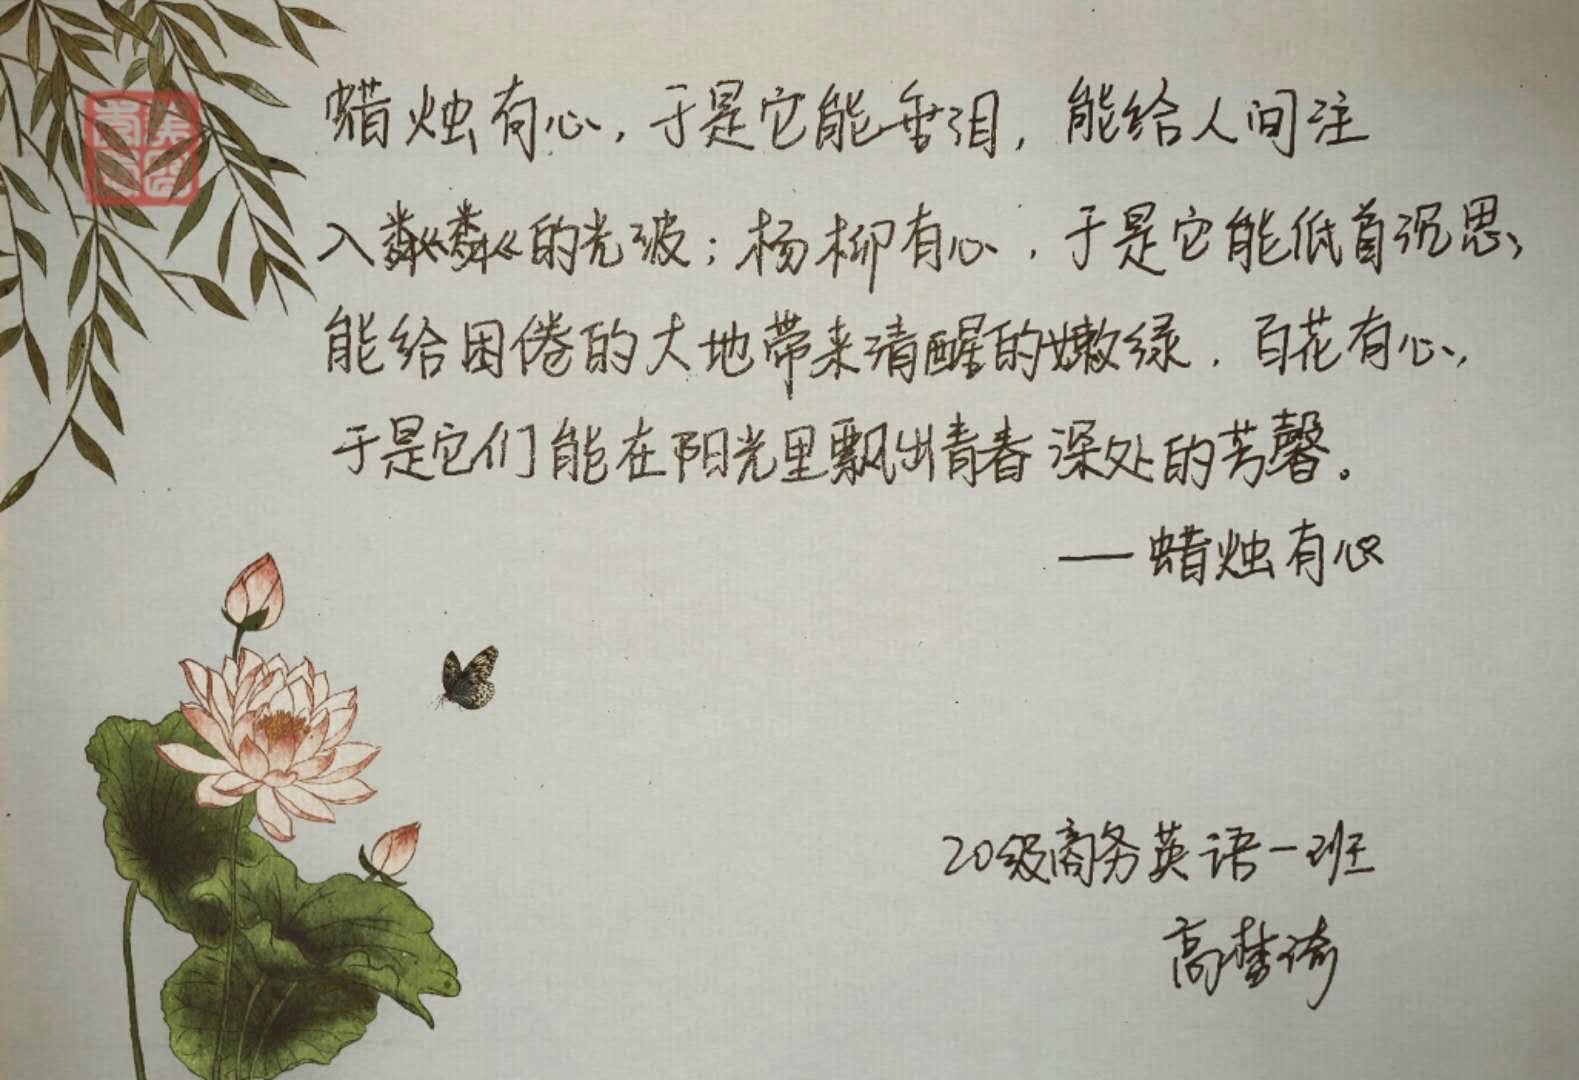 蜡烛有心，于是它能垂泪，能给人间注
入粼粼的光波；杨柳有心，于是它能低首沉思，
能给困倦的大地带来清醒的嫩绿．百花有心，
于是它们能在阳光里飘出青春深处的芳馨。
——蜡烛有心
20级商务英语一班
高梦